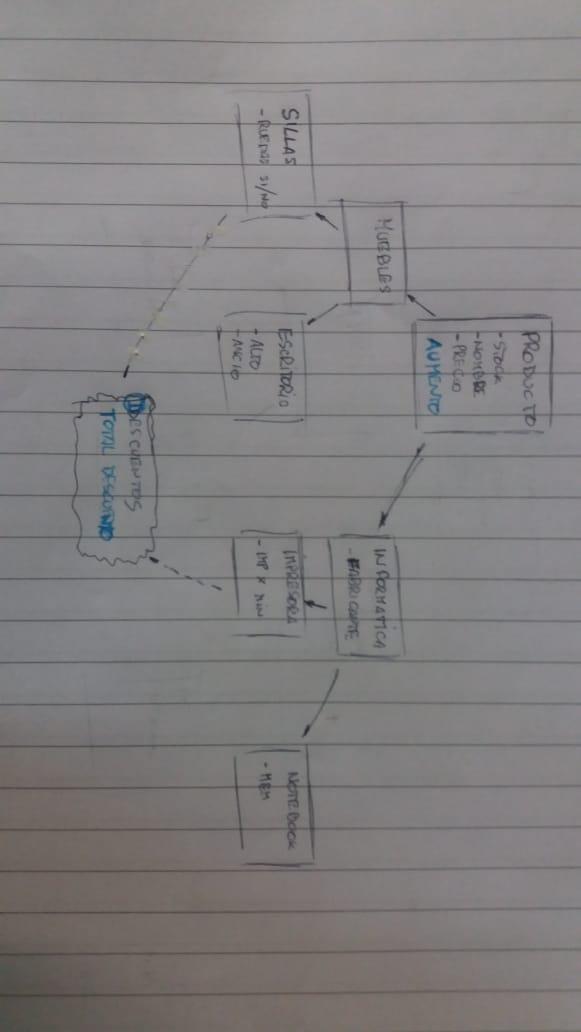 PRODUCTO
- STOCK
- NOMBRE
- PRECIO
AUMENTO
MUEBLES
INFORMATICA
- FABRICANTE
SILLAS
- RUEDAS SI/NO
ESCRITORIO
- ALTO
- ANCHO
IMPRESORA
- IMP x MIN
NOTEBOOK
- MEM
DESCUENTOS
TOTAL DESCUENTO